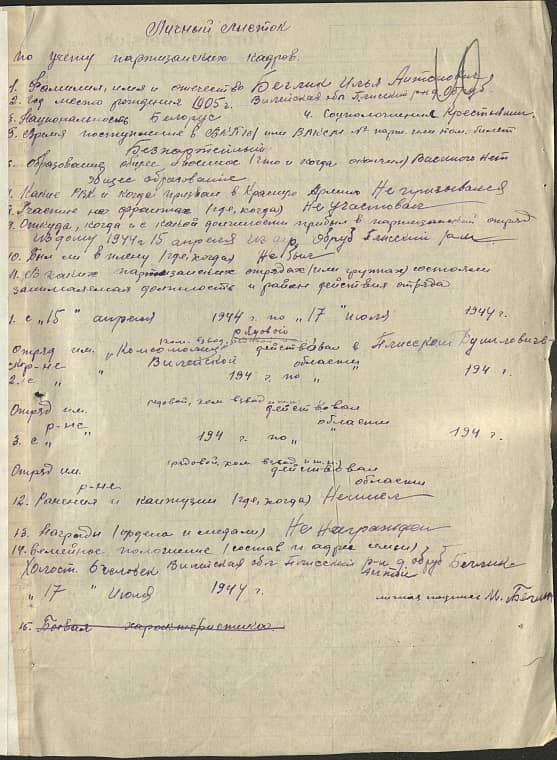 Личный листок
по учету партизанских кадров.
1. Фамилия, имя и отчество Беглик Илья Антонович
2. Год место рождения 1905 г. Вилейская обл Плисский р-н д. Обруб
3. Национальность Белорус 4. Соцположение Крестьянин
5. Время поступления в ВКП(б) или ВЛКСМ № парт. или ком. билет
Безпартийный
6. Образование общее военное (что и когда окончил) Военного нет
общее образование
7. Каким РВК и когда призван в Красную Армию Не призывался
8. Участие на фронтах (где, когда) Не участвовал
9. Откуда, когда и с какой должности прибыл в партизанский отряд
из дому 1944 г 15 апреля из дер Обруб Плисский рай
10. Был ли в плену (где, когда) Не был
11. В каких партизанских отрядах (или группах) состоял
занимаемая должность и район действия отряда
1. с „15" апреля 1944 г по „17" Июля 1944 г.
рядовой
Отряд им. „Комсомолец" действовал в Плисском
р-не Вилейской области
2. с „ " 194 г. по „ " 194 г.
рядовой, ком взвод
Отряд им. действовал
р-не области
3. с „ " 194 г по „ " 194 г.
рядовой, ком взвод
Отряд им. действовал
р-не области
12. Ранения и контузии (где, когда) Неимел
13. Награды (ордена и медали) Не награжден
14. Семейное положение (состав и адрес семьи)
Холост. 6 человек Вилейская обл Плисский р-н д Обруб Беглик
„17" Июля 1944 г. личная подпись
15. Боевая характеристика